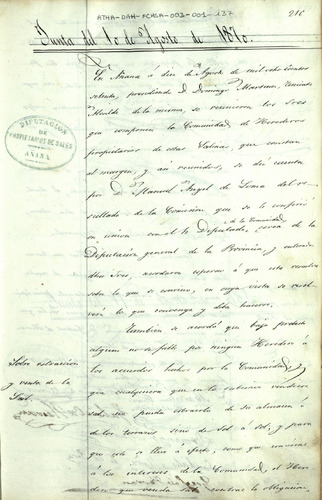 ATHA-DAH-FCHSA-003-001-137
210
Junta del 10 de Agosto de 1870.
En Añana á diez de Agosto de mil ochocientos
setenta, presidiendo D. Domingo Martinez,
Alcalde de la misma, se reunieron los Sres
que componen la Comunidad de Herederos
propietarios de estas Salinas, que constan
al margen, y asi reunidos, se dió cuenta
por D. Manuel Angel de Loma del re-
sultado de la Comision que se le confirió
de la Comunidad,
en union con el Diputado, cerca de la
Diputacion general de la Provincia, y enterados
dhos Sres, acordaron esperar á que esta resuelva
sobre lo que se convino, en cuya vista se resol-
verá lo que convenga y deba hacerse.
Tambien se acordó que bajo pretesto
alguno no se falte por ningun Heredero á
los acuerdos hechos por la Comunidad, y
que cualquiera que en lo sucesivo vendiere
sal, no pueda estraerla de su almacen ó
de los terrazos sino de sol á sol, y para
que esto se lleve á efecto, como que conviene
á los intereses de la Comunidad, el Here-
dero que venda sal, contrae la obligacion
DIPUTACION
DE
PROPIETARIOS DE SALES
AÑANA
Sobre estraccion
y venta de la
Sal.